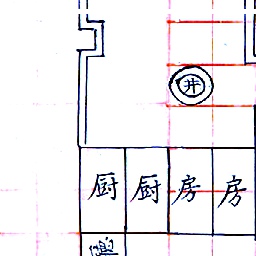 井
厨 厨 房 房